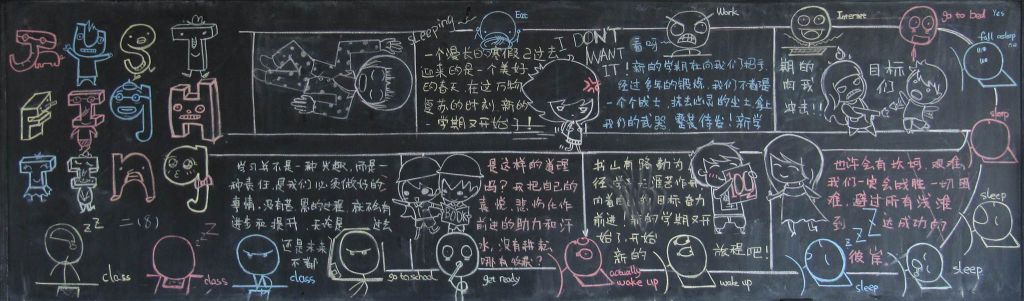 JUST
FIGHTING
二(8)
sleeping
一个漫长的寒假已过去
迎来的是一个美好
的春天,在这万物
复苏的时刻,新的
一学期又开始了!!
I DON'T
WANT
IT!
Eat
Work
Internet
go to bed
Yes
fall asleep
看吗
新的学期在向我们招手,
经过多年的锻炼,我们不都是
一个战士,
我们的武器,整装待发!新学
期的
向我
冲去!!
目标
们
sleep
sleep
sleep
sleep
学习并不是一种兴趣,而是一
种责任,是我们必须做好的
事情,没有艰
进步和提升,无论是
过去
还是未来
不都
是这样的道理
吗?我把自己的
喜悦,悲伤化作
前进的助力和汗
水,没有耕耘
哪有收获?
书山有路勤为
径,学海无涯苦作舟
向着新的目标奋力
前进,新的学期又开
始了,开始
新的
旅程吧!
100
也许会有坎坷,艰难,
我们一定会战胜一切困
难,避过所有浅滩
到
达成功的
彼岸
zzz
zz
zzz
class
class
class
go to school
get ready
actually
wake up
wake up